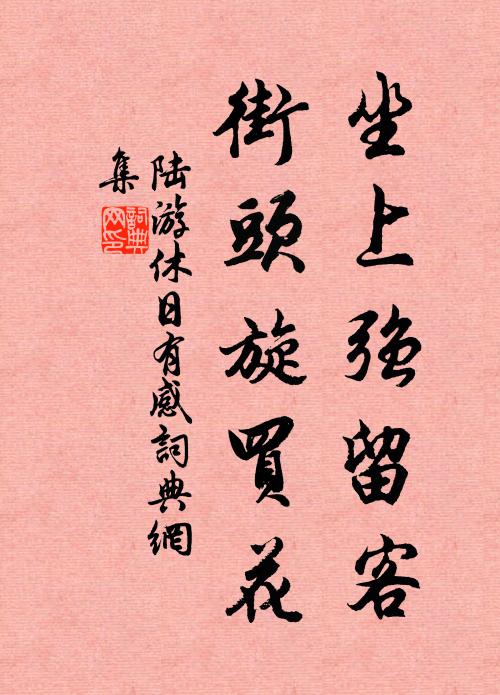 坐上強留客
街頭旋買花
陆游休日有感詞典網
集
詞典
网印